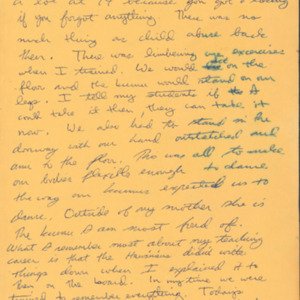 a lot at 19 because you got a
if you forgot anything. There was no
such thing as child abuse back
then. There was limbering up exercises
when I trained. We would on the
floor and the kumu would stand on our
legs. I tell my students if I
could take it then, they can take it
now. We also had to stand in the
doorway with our hand outstretched and
to the floor. This was all to make
our bodies flexible enough to dance
the way our kumus expected us to
dance. Outside of my mother she is
the kumu I am most fond of.
What I remember most about my teaching
career is that the Hawaiians didnt write
things down when I explained it to
them on the board. In my time we were
trained to remember everything. Todays